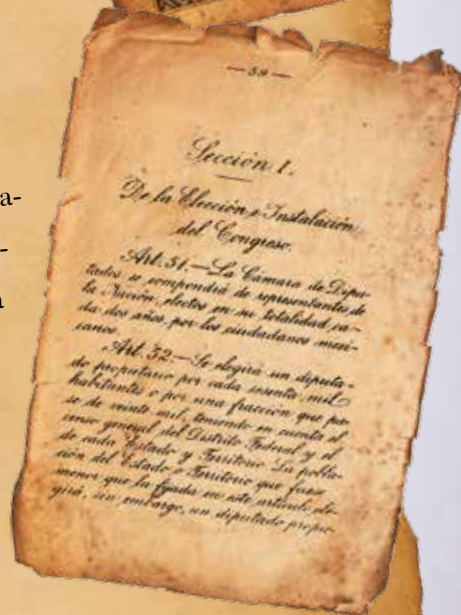 a-
-
a
— 39 —
Sección I.
De la Elección e Instalación
del Congreso.
Art. 51.—La Cámara de Dipu-
tados se compondrá de representantes de
la Nación, electos en su totalidad ca-
da dos años, por los ciudadanos mexi-
canos.
Art. 52.—Se elegirá un diputa-
do propietario por cada sesenta mil
habitantes o por una fracción que pa-
se de veinte mil, teniendo en cuenta el
censo general del Distrito Federal y el
de cada Estado y Territorio. La pobla-
ción del Estado o Territorio que fuese
menor que la fijada en este artículo, ele-
girá, sin embargo, un diputado propie-